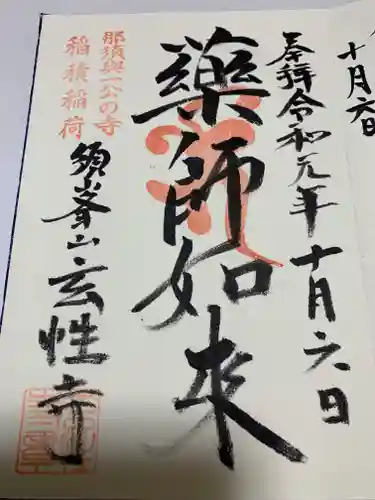 十月六日
奉拝令和元年十月六日
薬師如来
那須與一公の寺
稲積稲荷
須峯山玄性寺